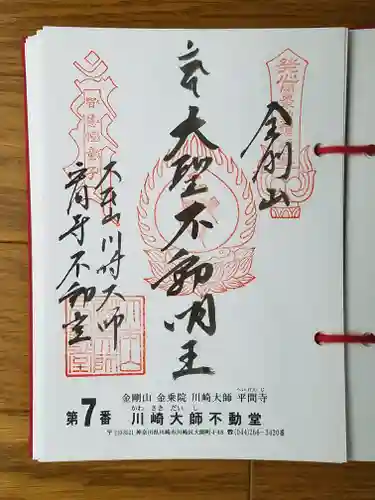 金剛山
大聖不動明王
大本山川崎大師
平間寺不動堂
へいけんじ
金剛山 金乗院 川崎大師 平間寺
かわさきだいし
第7番 川崎大師不動堂
神奈川県川崎市川崎区大師町4-48 ☎(044)266-3420番